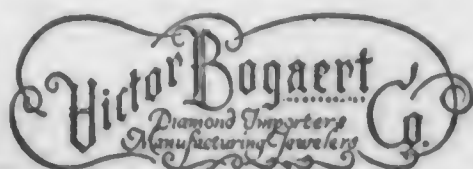 Victor Bogaert Co.
Diamond Importers
Manufacturing Jewelers